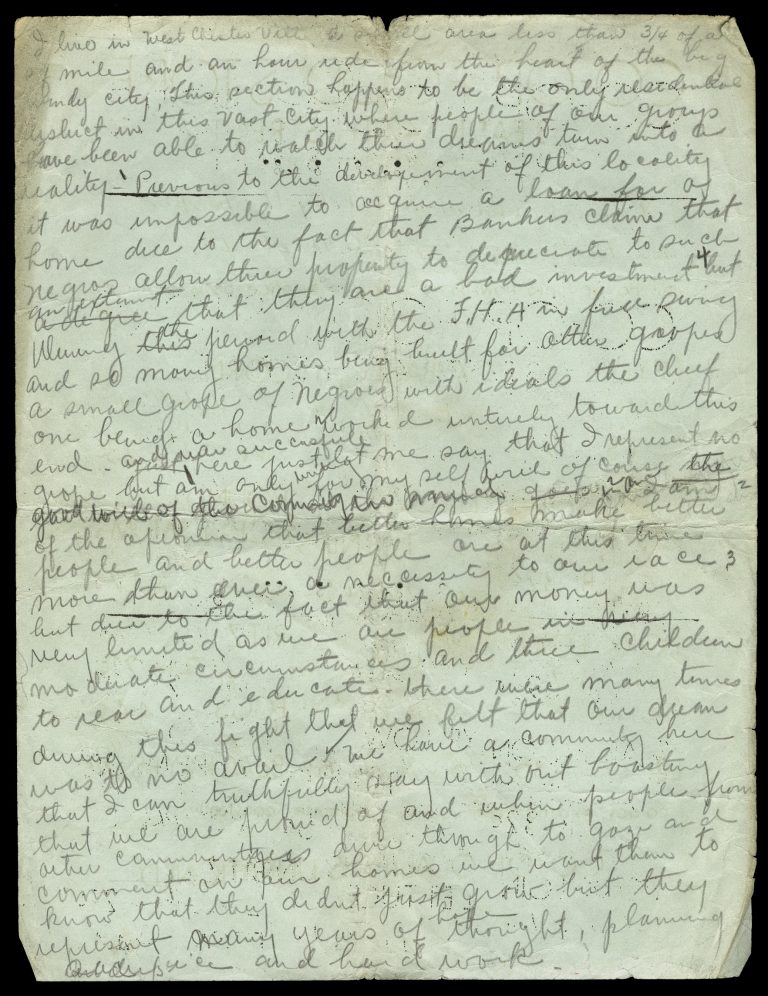 I live in West Chester Vill a small area less than 3/4 of a
mile and an hour ride from the heart of the big
windy city, This section happens to be the only residential
district in this vast city where people of our group
have been able to watch their dreams turn into a
reality - Previous to the development of this locality
it was impossible to acquire a loan for a
home due to the fact that Bankers claim that
negros allow their property to depreciate to such
an extent
a degree that they are a bad investment 4 but
During this the period with the F.H.A in full swing
and so many homes being built for other groopes
a small grope of Negroes, with ideals the chief
one being a home worked untirely toward this
end - and was successful
just here let me say that I represent no
grope but am only writing for my self and of course the
good will of the Community 2 and I am 2
of the opionion that better homes make better
people and better people are at this time
more than ever a necessity to our race 3
but due to the fact that our money was
very limited as we are people in very
moderate circumstances and three children
to rear and educate. there were many times
during this fight that we felt that our dream
was to no avail. We have a community here
that I can truthfully say with out boasting
that we are proud of and when people from
other communities drive through to gaze and
comment on our homes we want them to
know that they didnt just grow but they
represent many years of hope thought, planning
and hard work.